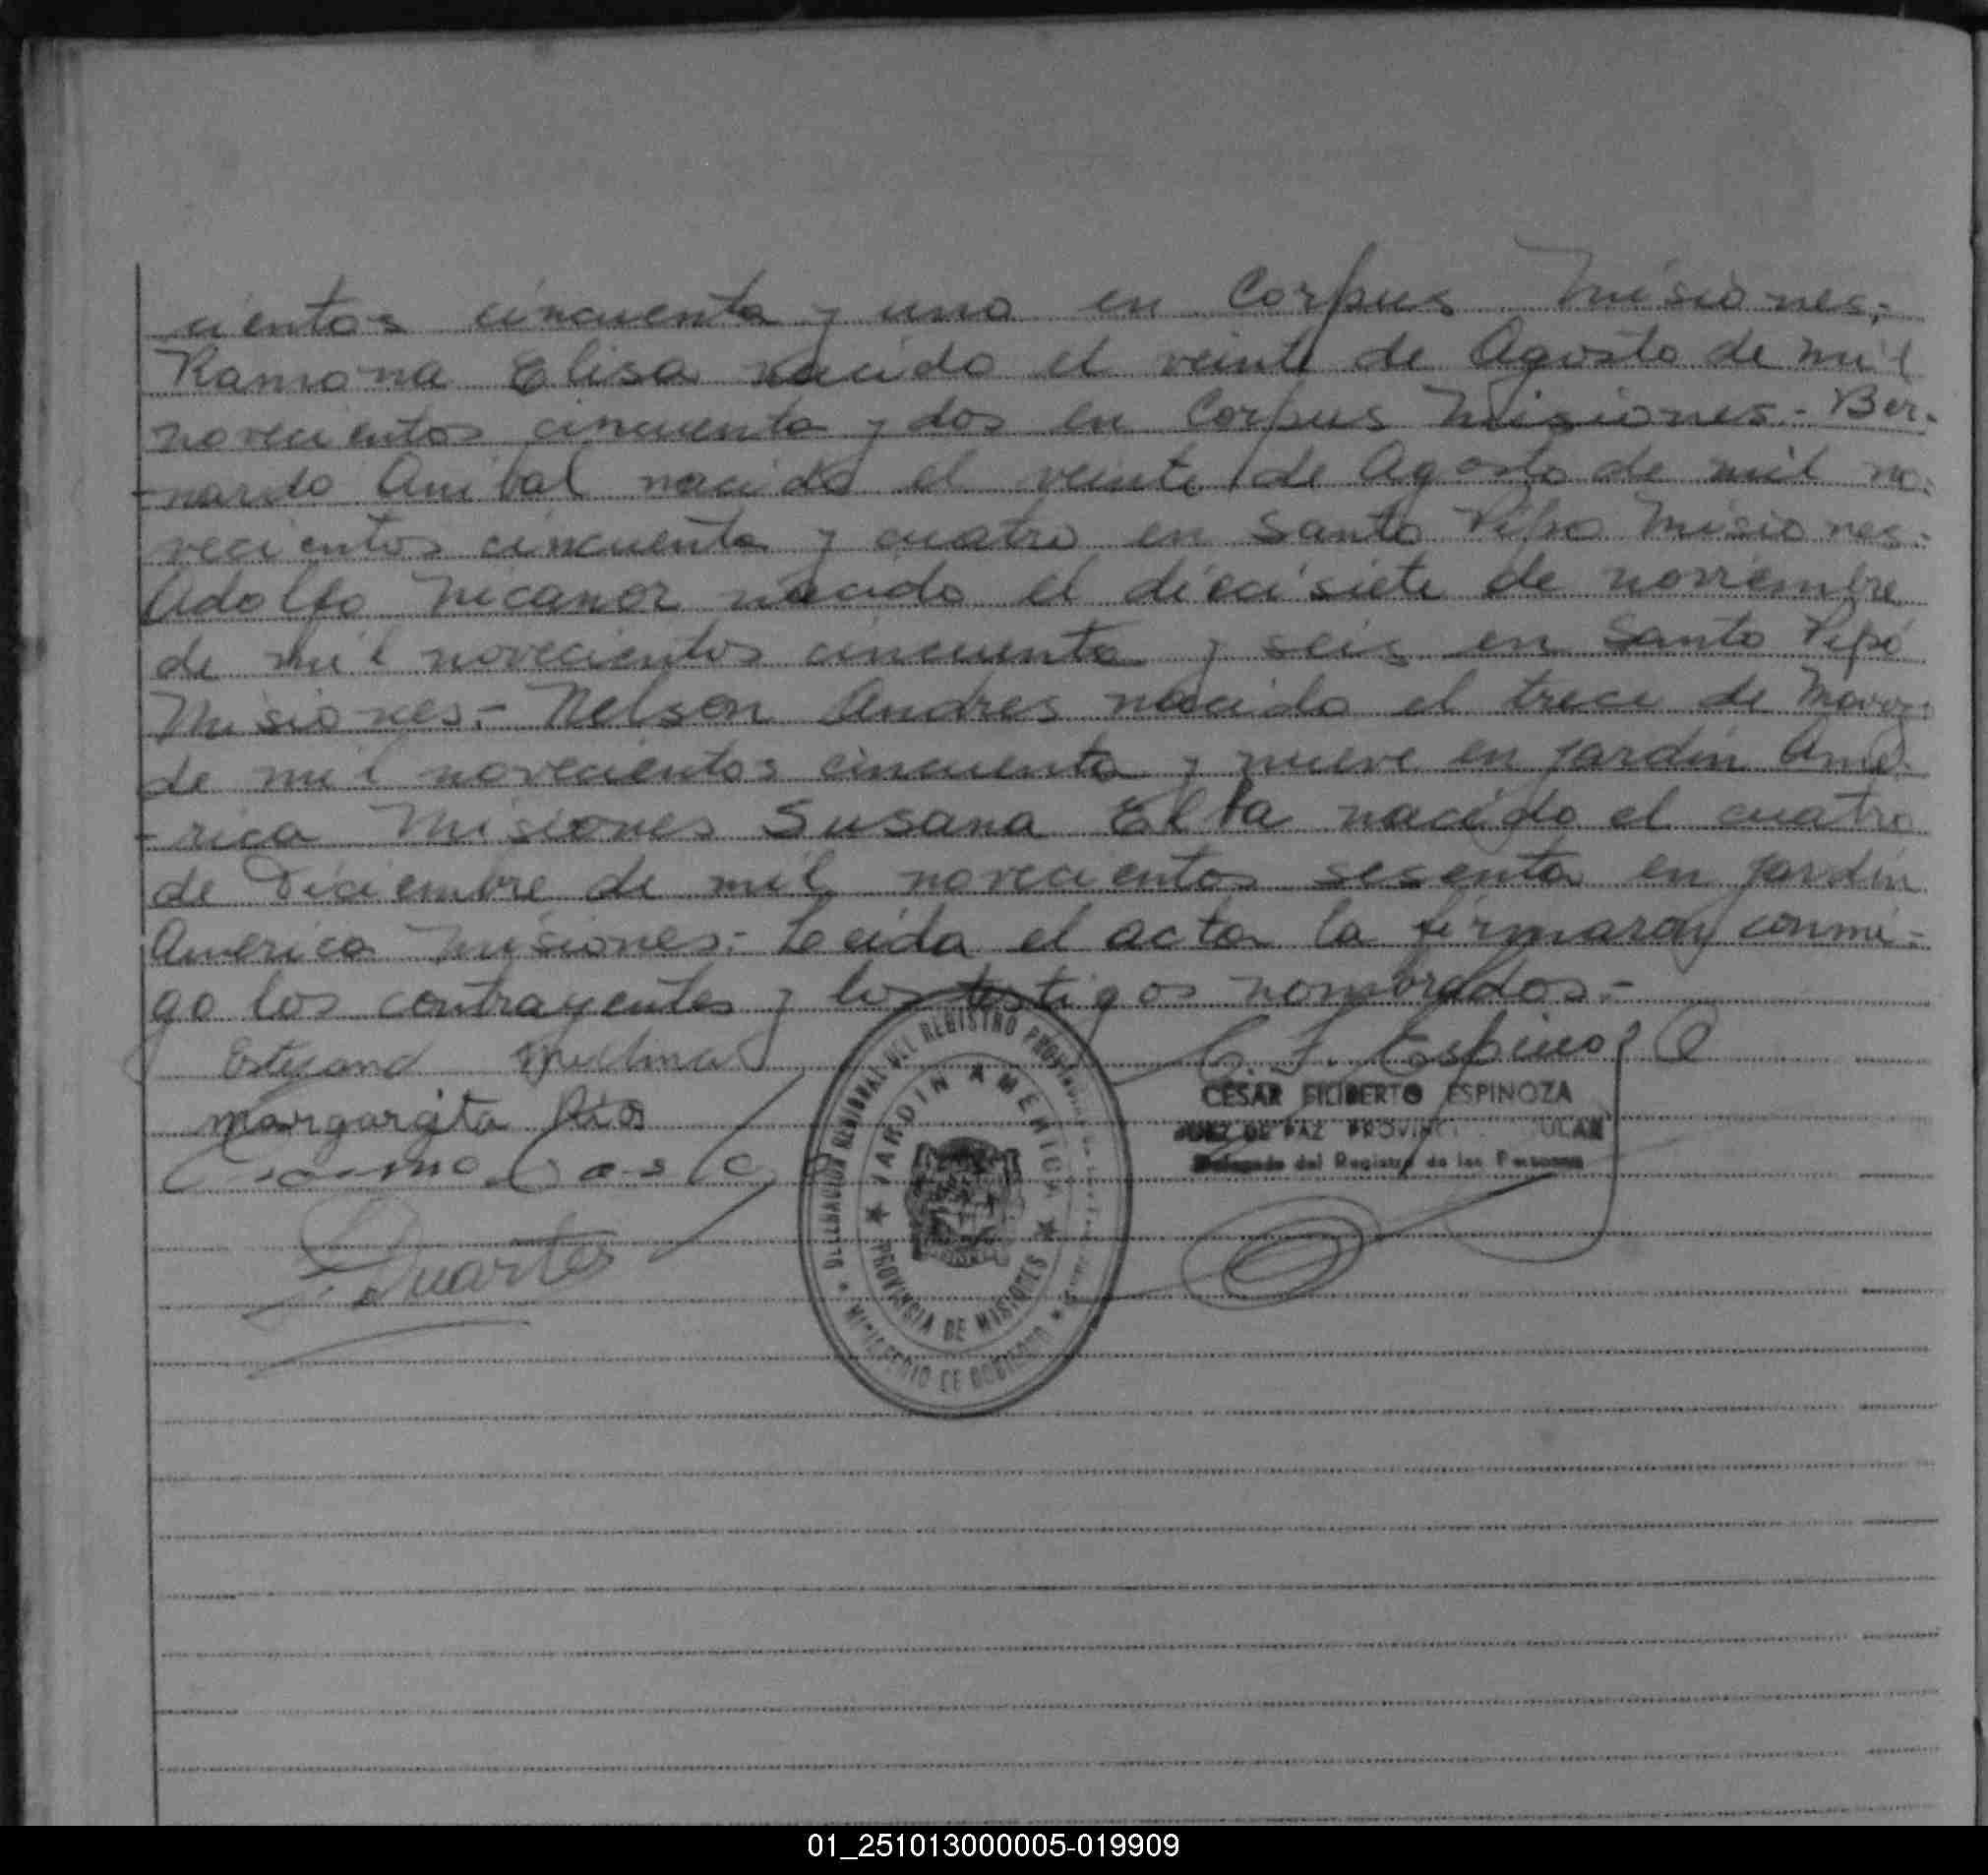 cientos cincuenta y uno en Corpus Misiones;
Ramona Elisa nacido el veinte de Agosto de mil
novecientos cincuenta y dos en Corpus Misiones.- Ber-
-nardo Anibal nacido el veinte de Agosto de mil no-
vecientos cincuenta y cuatro en Santo Pipo Misiones.-
Adolfo Nicanor nacido el diecisiete de noviembre
de mil novecientos cincuenta y seis en Santo Pipó
Misiones.- Nelson Andres nacido el trece de Marzo
de mil novecientos cincuenta y nueve en Jardin Amé-
-rica Misiones Susana Elba nacido el cuatro
de Diciembre de mil novecientos sesenta en Jardin
America Misiones.- Leida el acta la firmaron conmi-
go los contrayentes y los testigos nombrados.-
C. F. Espinoza
margarita Rios
Duarte
CESAR FILIBERTO ESPINOZA
JUEZ DE PAZ
Delegado del Registro de las Personas
DELEGACION REGIONAL DEL REGISTRO PROVINCIAL
JARDIN AMERICA
PROVINCIA DE MISIONES
MINISTERIO DE GOBIERNO
01_251013000005-019909